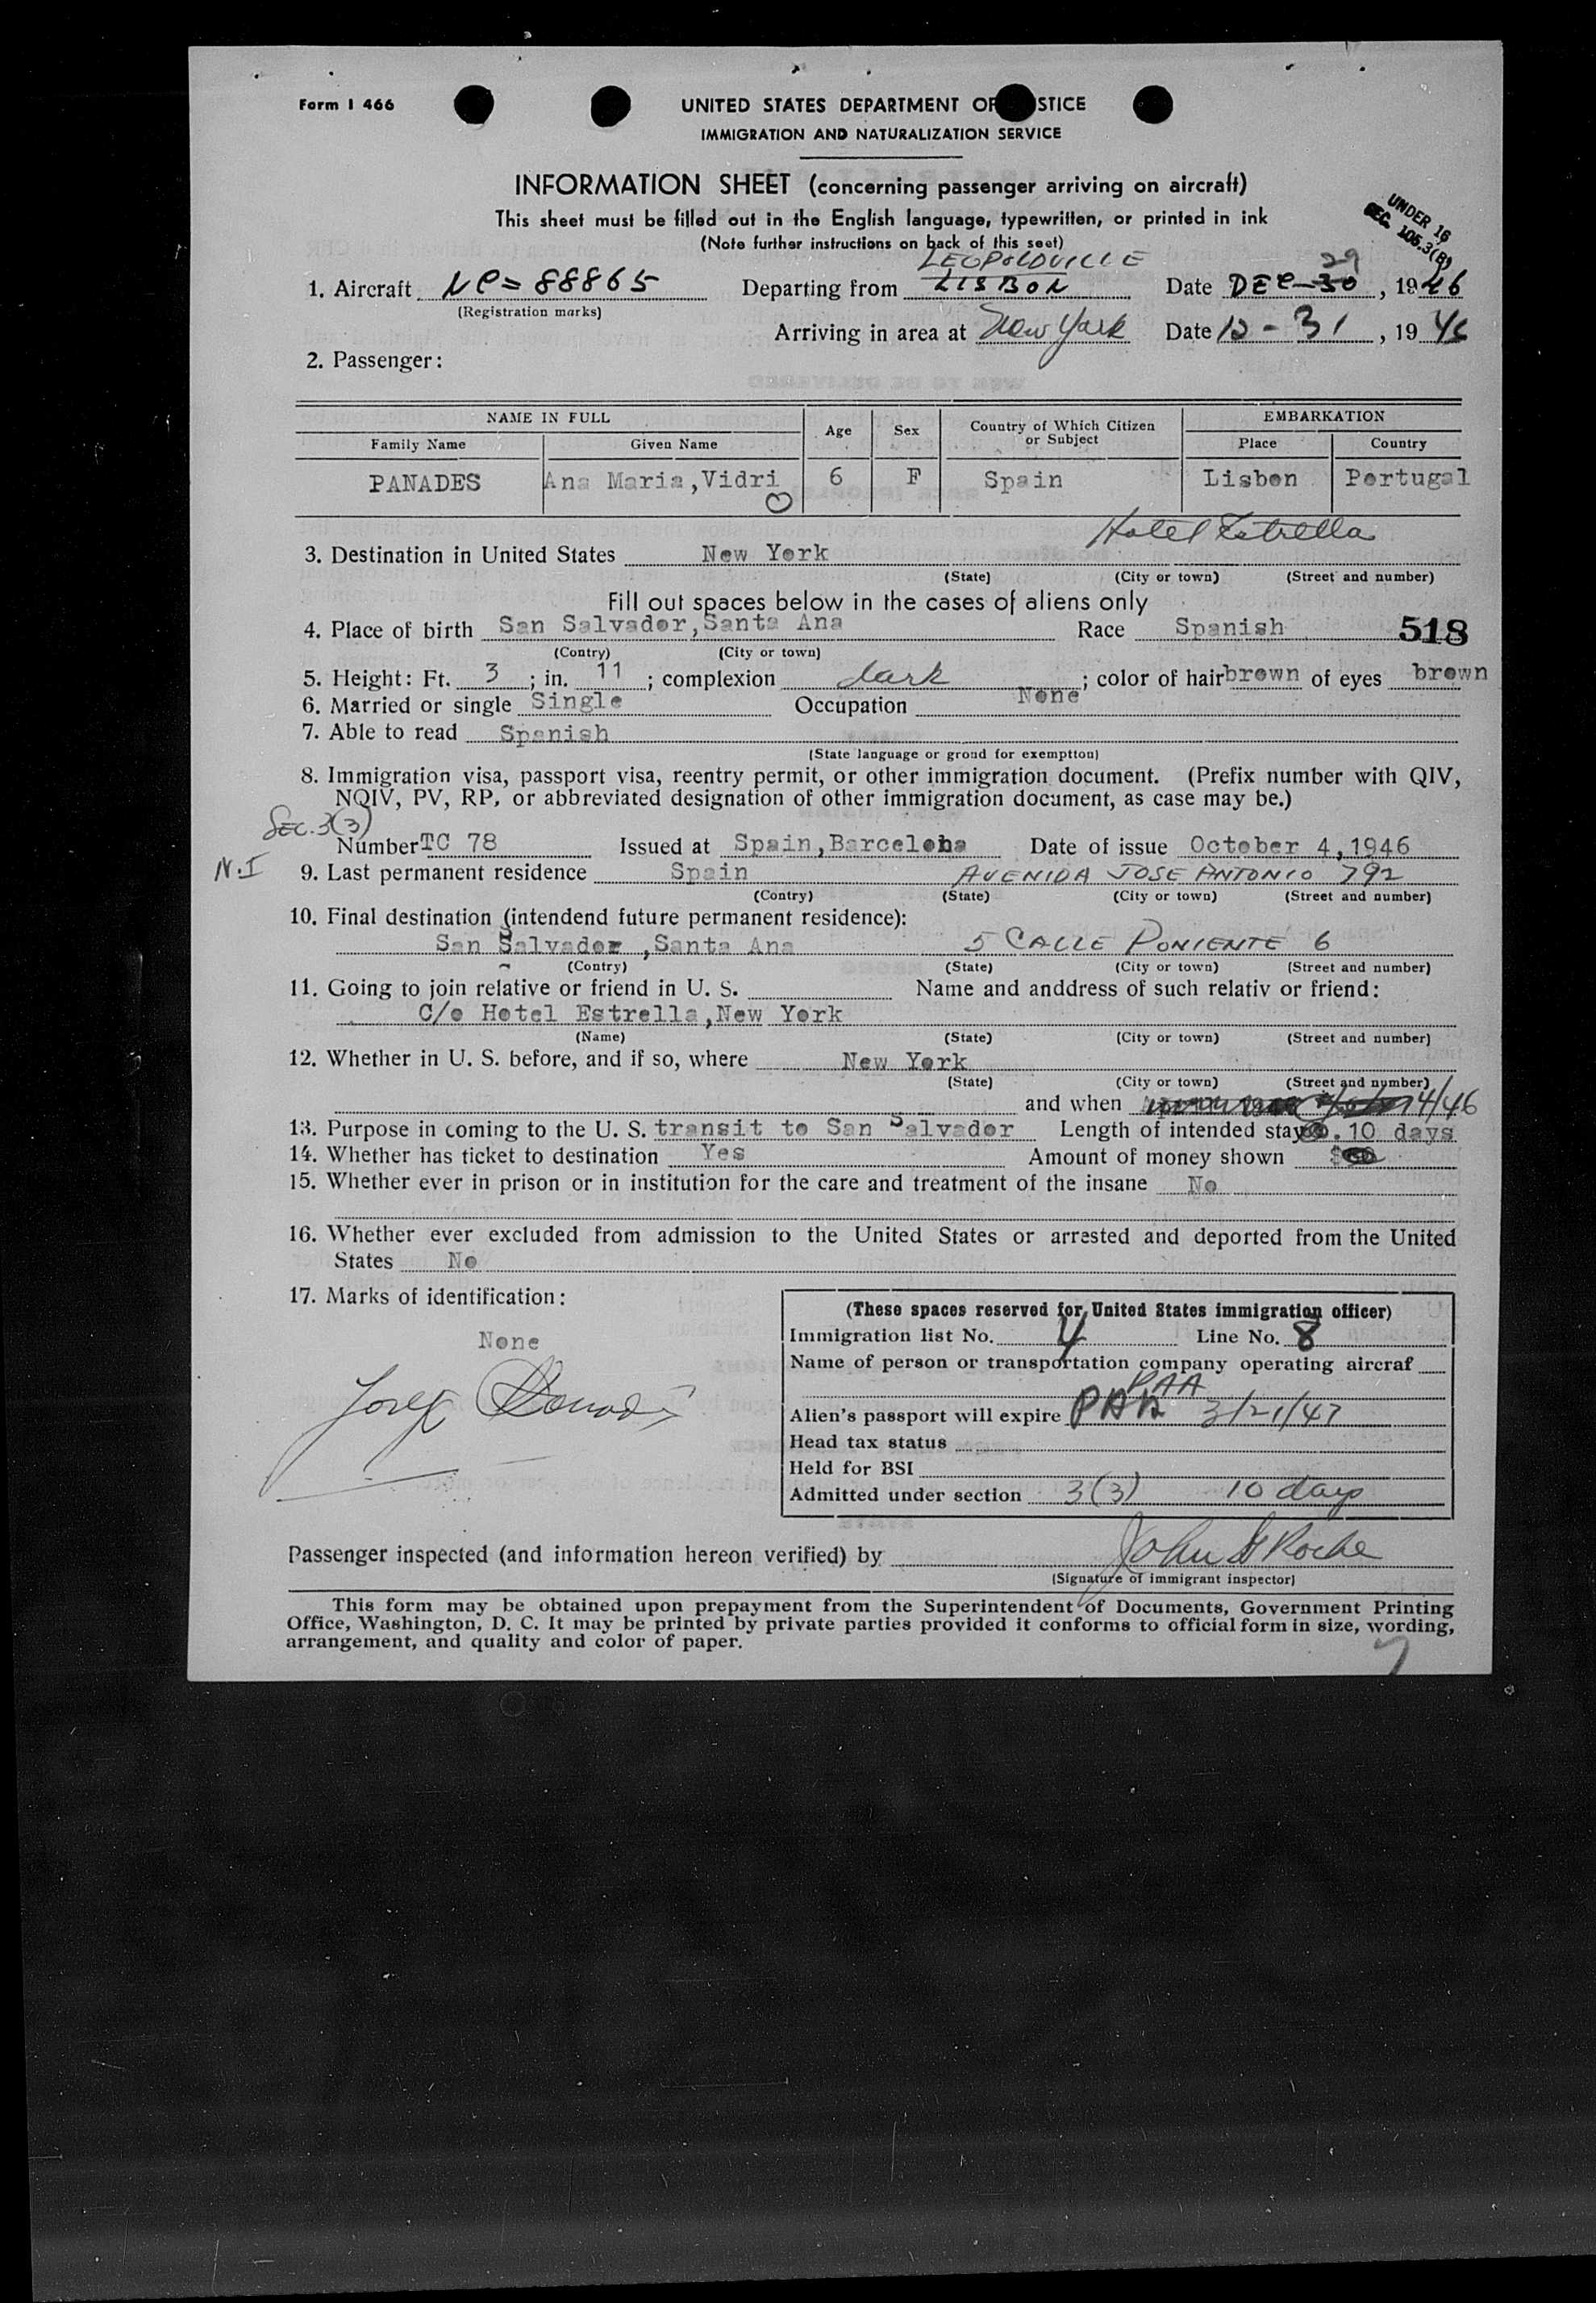 Form I 466
UNITED STATES DEPARTMENT OF STICE
IMMIGRATION AND NATURALIZATION SERVICE
INFORMATION SHEET (concerning passenger arriving on aircraft)
This sheet must be filled out in the English language, typewritten, or printed in ink
(Note further instructions on back of this seet)
UNDER 16
SEC. 105.3(B)
LEOPOLDVILLE 29
1. Aircraft NC=88865 Departing from LISBON Date DEC-30, 1946
(Registration marks)
Arriving in area at New York Date 12-31, 1946
2. Passenger:
NAME IN FULL Age Sex Country of Which Citizen or Subject EMBARKATION
Family Name Given Name Place Country
PANADES Ana Maria,Vidri 6 F Spain Lisbon Portugal
Hotel Estrella
3. Destination in United States New York
(State) (City or town) (Street and number)
Fill out spaces below in the cases of aliens only
4. Place of birth San Salvador,Santa Ana Race Spanish 518
(Contry) (City or town)
5. Height: Ft. 3; in. 11; complexion dark; color of hair brown of eyes brown
6. Married or single Single Occupation None
7. Able to read Spanish
(State language or grond for exemption)
8. Immigration visa, passport visa, reentry permit, or other immigration document. (Prefix number with QIV,
NQIV, PV, RP, or abbreviated designation of other immigration document, as case may be.)
Sec. 3(3)
Number TC 78 Issued at Spain,Barcelona Date of issue October 4,1946
N.I 9. Last permanent residence Spain AVENIDA JOSE ANTONIO 792
(Contry) (State) (City or town) (Street and number)
10. Final destination (intendend future permanent residence):
San Salvador ,Santa Ana 5 CALLE PONIENTE 6
(Contry) (State) (City or town) (Street and number)
11. Going to join relative or friend in U. S. Name and anddress of such relativ or friend:
C/o Hotel Estrella,New York
(Name) (State) (City or town) (Street and number)
12. Whether in U. S. before, and if so, where New York
(State) (City or town) (Street and number)
and when 4/46
13. Purpose in coming to the U. S. transit to San Salvador Length of intended stay 10 days
14. Whether has ticket to destination Yes Amount of money shown $
15. Whether ever in prison or in institution for the care and treatment of the insane No
16. Whether ever excluded from admission to the United States or arrested and deported from the United
States No
17. Marks of identification:
None
(These spaces reserved for United States immigration officer)
Immigration list No. 4 Line No. 8
Name of person or transportation company operating aircraf
PAA
Alien's passport will expire PAA 3/21/47
Head tax status
Held for BSI
Admitted under section 3(3) 10 days
Passenger inspected (and information hereon verified) by John Roche
(Signature of immigrant inspector)
This form may be obtained upon prepayment from the Superintendent of Documents, Government Printing
Office, Washington, D. C. It may be printed by private parties provided it conforms to official form in size, wording,
arrangement, and quality and color of paper.